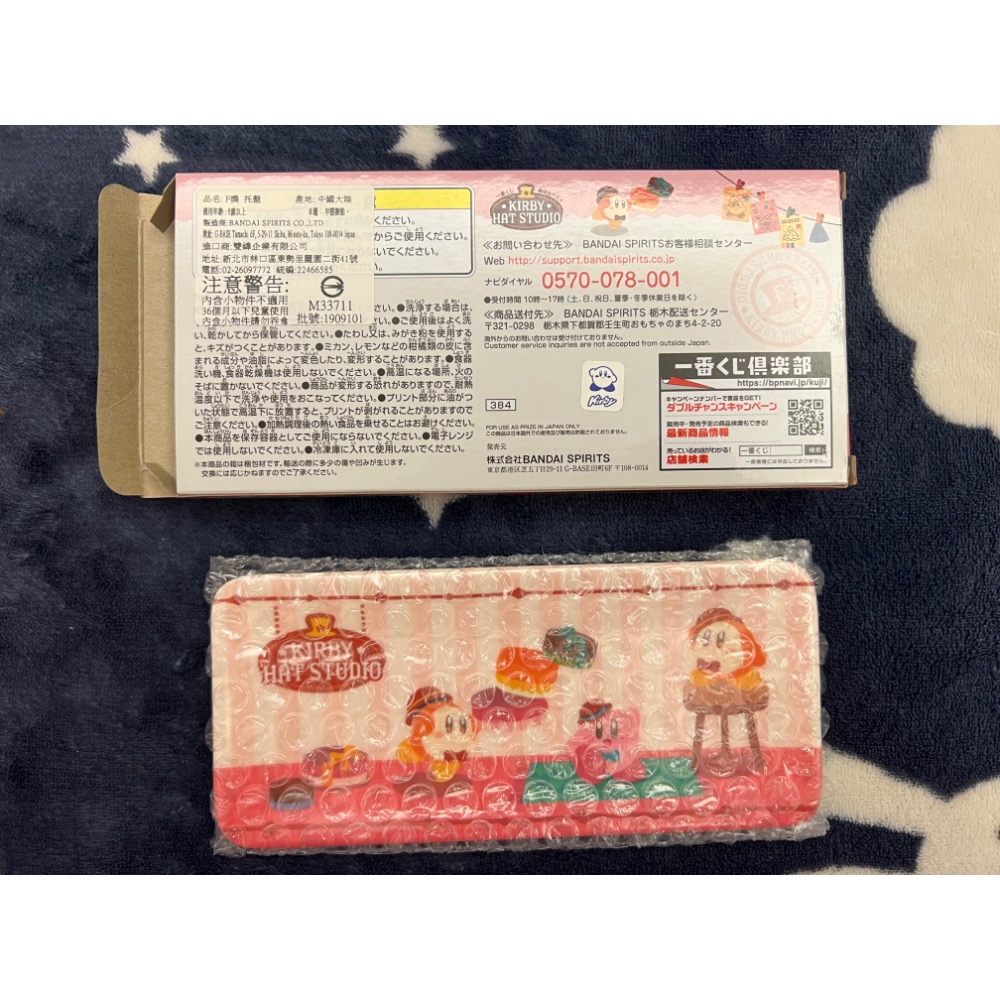 品名: F獎 托盤 產地: 中國大陸
適用年齡: 8歲以上
製造商:BANDAI SPIRITS CO.,LTD
地址: G-BASE Tamachi 6F, 5-29-11 Shiba, Minato-ku, Tokyo 108-0014 Japan
進口商:雙緯企業有限公司
地址:新北市林口區東勢里麗園二街41號
電話:02-26097772 統編:22466585
注意警告:
內含小物件不適用
36個月以下兒童使用
內含小物件請勿吞食
M33711
批號:1909101
ください。
からご使用くだ
いでください。
●洗浄する場合は、
●ご使用後はよく洗
い、乾かしてから保管してください。●たわし又は、みがき粉を使用すると
、キズがつくことがあります。●ミカン、レモンなどの柑橘類の皮に含
まれる成分や油脂によって変色したり、変形することがあります。●食器
洗い機、食器乾燥機は使用しないでください。●高温になる場所、火の
そばに置かないでください。●商品が変形する恐れがありますので、耐熱
温度以下で洗浄や使用をおこなってください。●プリント部分に油がつ
いた状態で高温下に放置すると、プリントが剥がれることがありますので
ご注意ください。●加熱調理後の熱い食品を乗せることはお避けください。
●本商品を保存容器としてご使用にならないでください。●電子レンジ
では使用しないでください。●冷凍庫に入れて使用しないでください。
※本商品の箱は梱包材です。輸送の際に多少の傷や凹みが生じます。
交換には応じかねますのでご了承ください。
一番くじ
KIRBY
HAT STUDIO
≪お問い合わせ先≫ BANDAI SPIRITSお客様相談センター
Web http://support.bandaispirits.co.jp
ナビダイヤル 0570-078-001
●受付時間 10時~17時(土、日、祝日、夏季・冬季休業日を除く)
≪商品送付先≫ BANDAI SPIRITS 栃木配送センター
〒321-0298 栃木県下都賀郡壬生町おもちゃのまち4-2-20
海外からのお問い合わせは受け付けておりません。
Customer service inquiries are not accepted from outside Japan.
384
Kirby
FOR USE AS PRIZE IN JAPAN ONLY
この商品は日本国外での使用及び販売は許諾されておりません。
発売元
株式会社BANDAI SPIRITS
東京都港区芝五丁目29-11 G-BASE田町6F 〒108-0014
一番くじ倶楽部
https://bpnavi.jp/kuji/
キャンペーンナンバーで賞品をGET!
ダブルチャンスキャンペーン
販売中・発売予定の商品検索もできる!
最新商品情報
売っているお店がわかる!
店舗検索
一番くじ
検索
※一部機種には対応しておりません。
KIRBY
HAT STUDIO